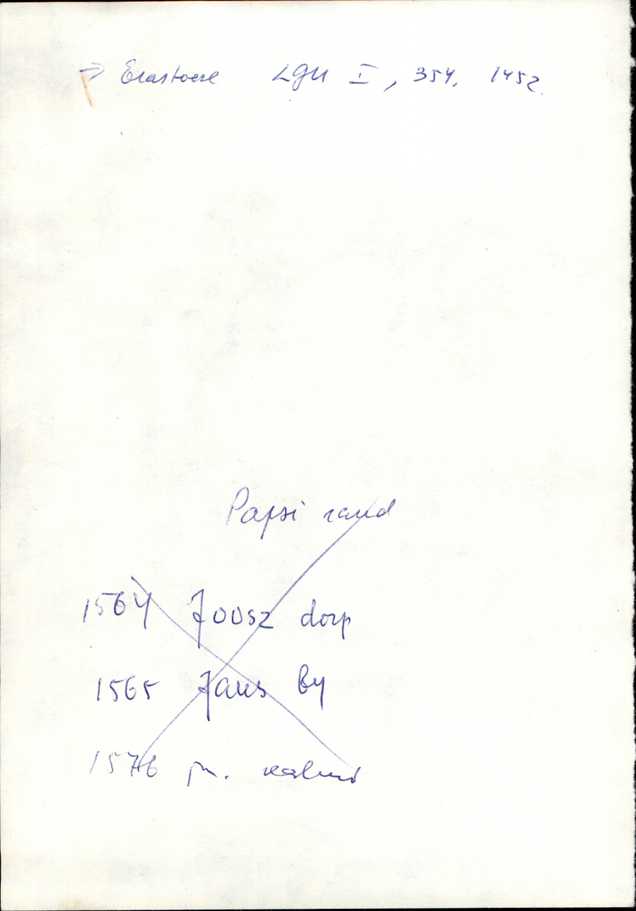 → Erastvere LGU I, 354. 1452.
Papsi rand
1564 Joosz dorp
1565 Jaus by
1576